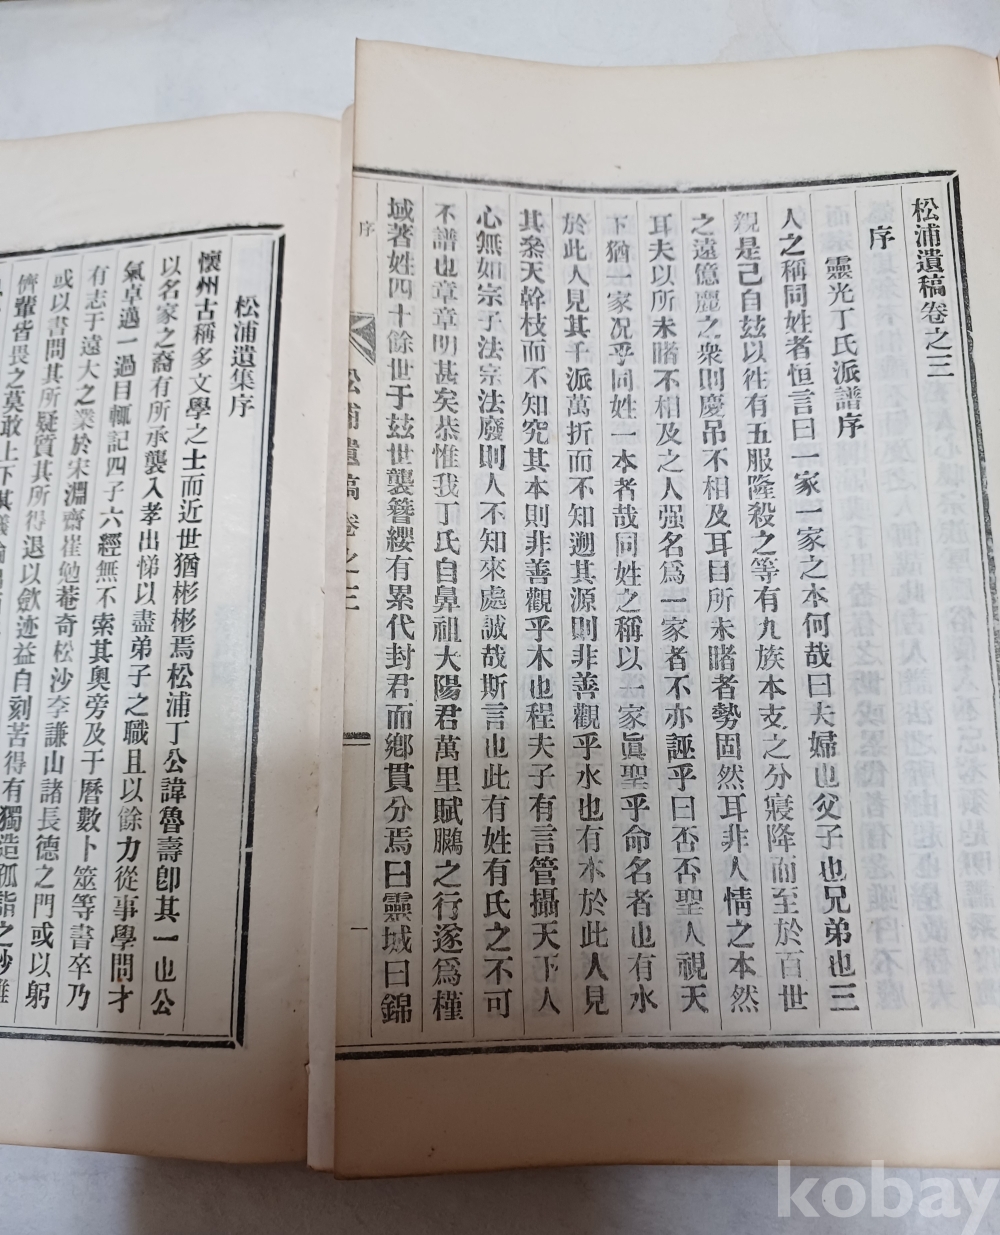 松浦遺稿卷之三
序
靈光丁氏派譜序
人之稱同姓者恒言曰一家一家之本何哉曰夫婦也父子也兄弟也三
親是己自玆以徃有五服隆殺之等有九族本支之分寢降而至於百世
之遠億麗之衆則慶吊不相及耳目所未睹者勢固然耳非人情之本然
耳夫以所未睹不相及之人强名爲一家者不亦誣乎曰否否聖人視天
下猶一家况乎同姓一本者哉同姓之稱以一家眞聖乎命名者也有水
於此人見其千派萬折而不知遡其源則非善觀乎水也有木於此人見
其枀天幹枝而不知究其本則非善觀乎木也程夫子有言管攝天下人
心無如宗子法宗法廢則人不知來處誠哉斯言也此有姓有氏之不可
不譜也章章明甚矣恭惟我丁氏自鼻祖大陽君萬里賦鵩之行遂爲槿
域著姓四十餘世于玆世襲簪纓有累代封君而鄕貫分焉曰靈城曰錦
序
松浦遺稿 卷之三
一
松浦遺集序
懷州古稱多文學之士而近世猶彬彬焉松浦丁公諱魯壽卽其一也公
以名家之裔有所承襲入孝出悌以盡弟子之職且以餘力從事學問才
氣卓邁一過目輒記四子六經無不索其奧旁及于曆數卜筮等書卒乃
有志于遠大之業於宋淵齋崔勉菴奇松沙李謙山諸長德之門或以躬
或以書問其所疑質其所得退以斂迹益自刻苦得有獨造孤詣之妙
儕輩皆畏之莫敢上下其